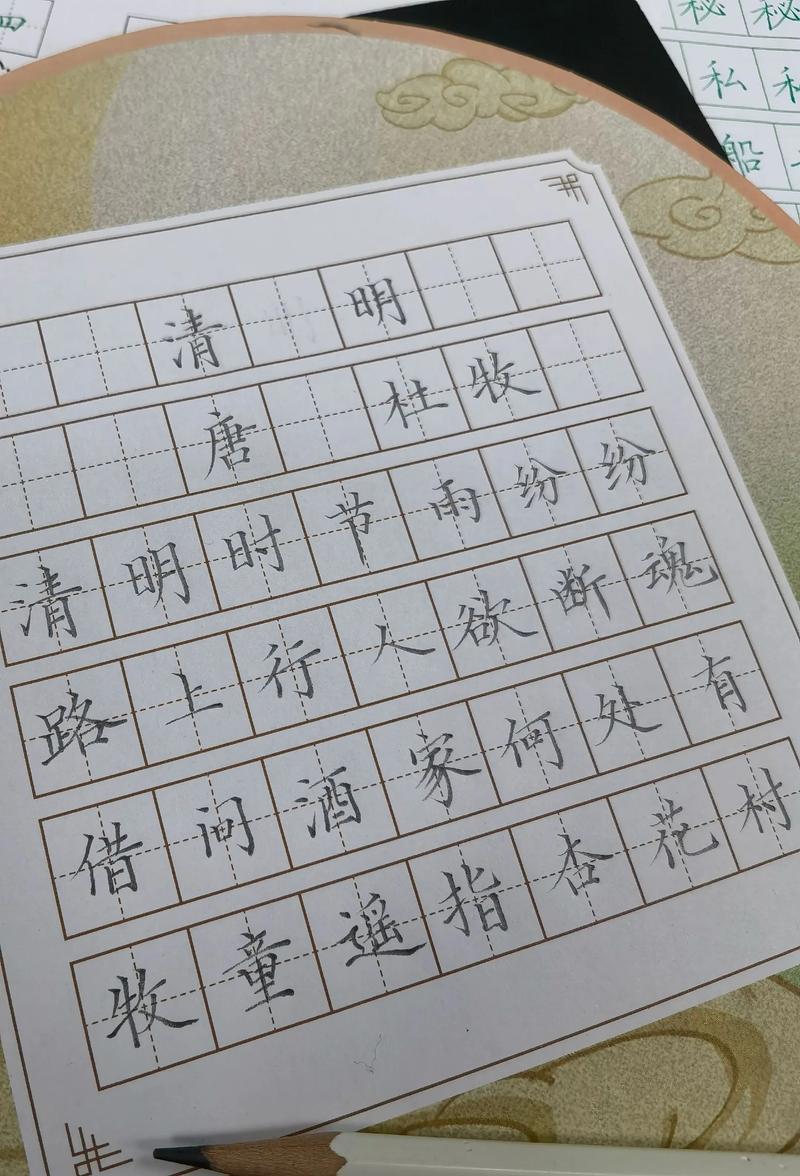 四
秘 秘
私
船
清 明
唐 杜牧
清明时节雨纷纷
路上行人欲断魂
借问酒家何处有
牧童遥指杏花村